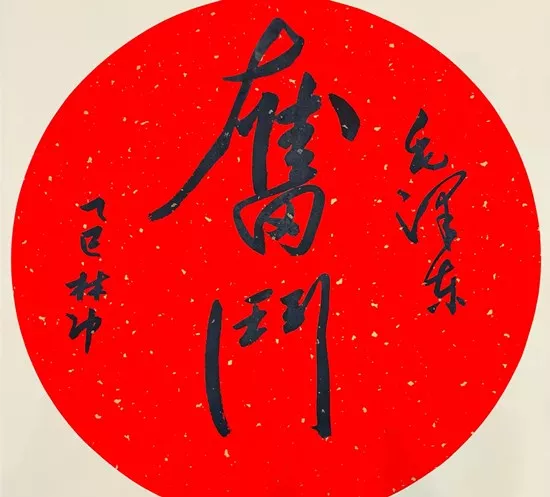 毛泽东
奮鬥
乙巳林冲